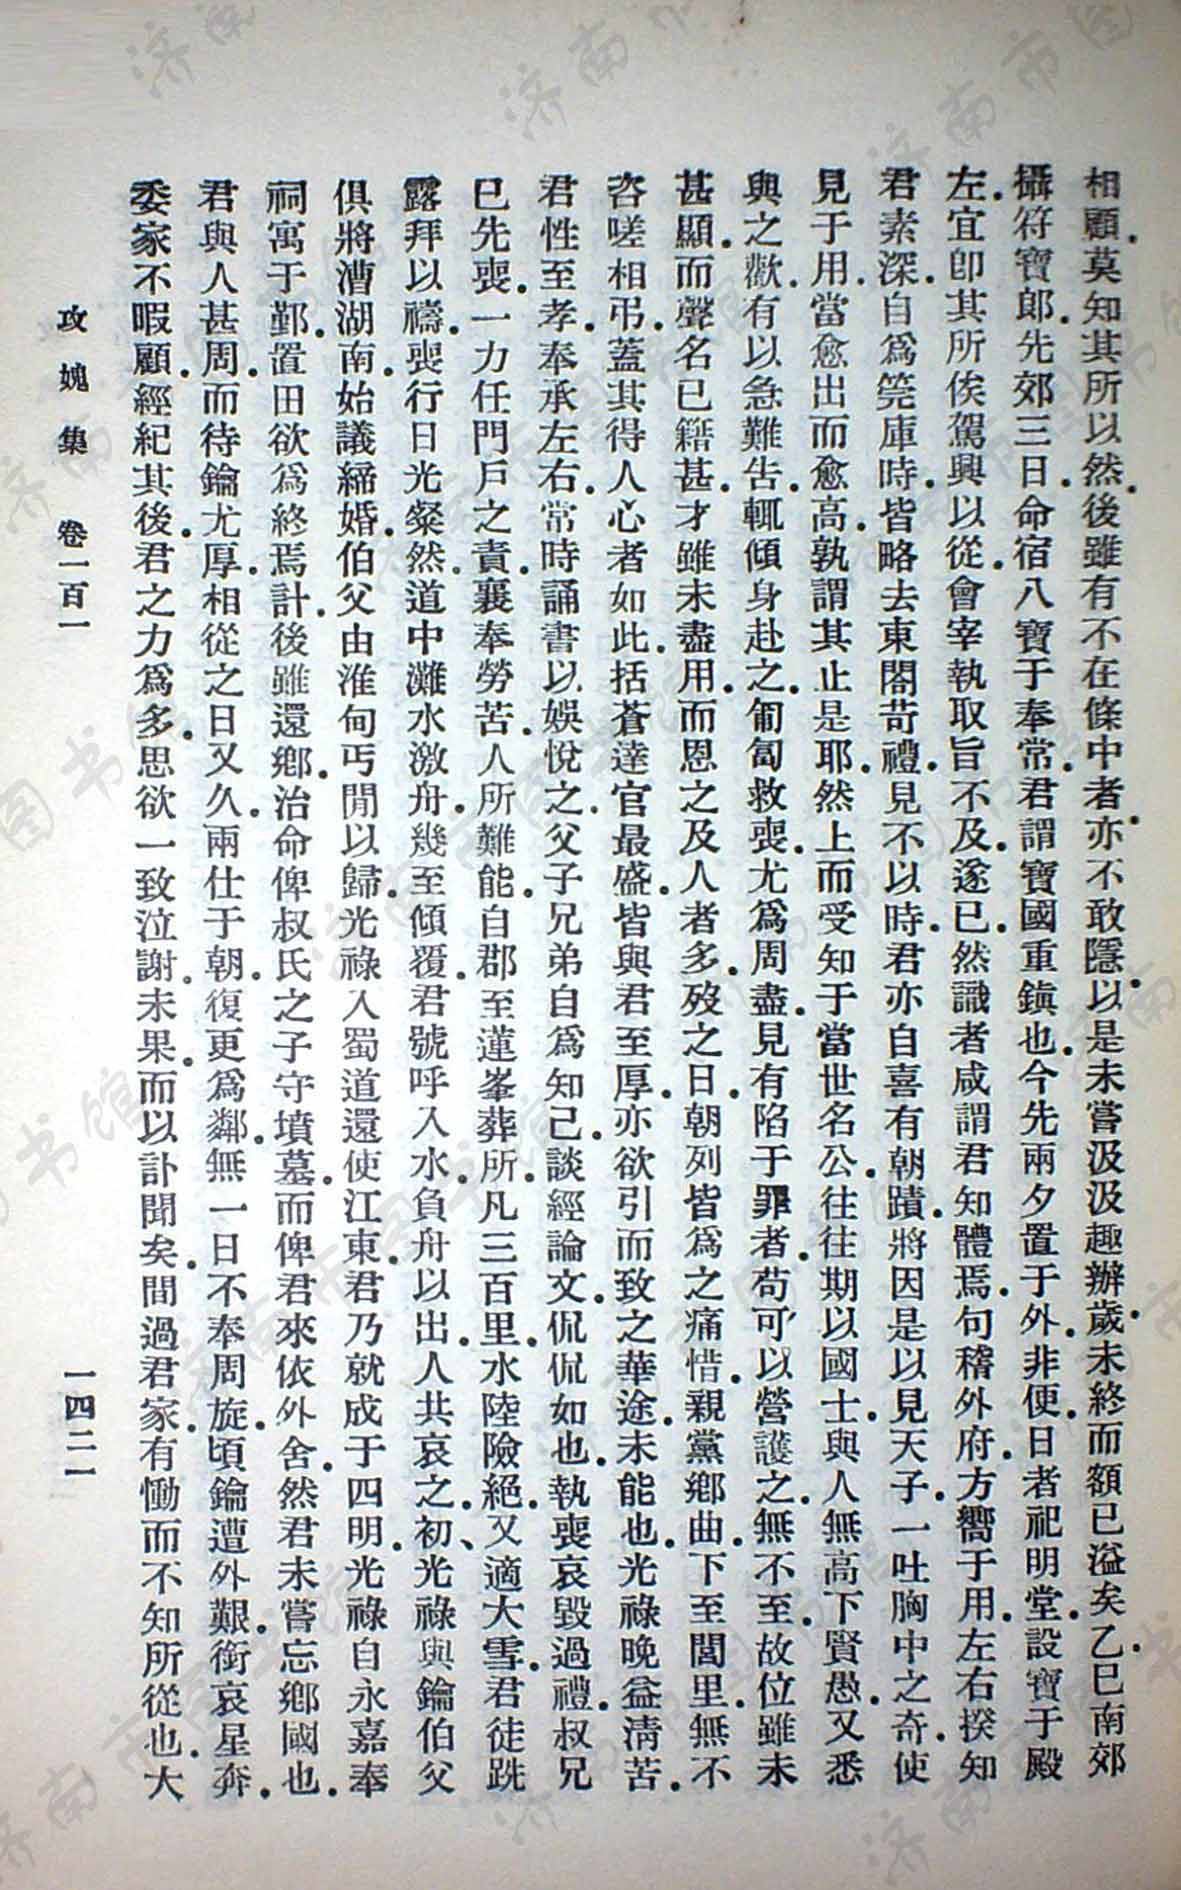 相顧莫知其所以然後雖有不在條中者亦不敢隱以是未嘗汲汲趣辦歲未終而額已溢矣乙巳南郊
攝符寶郎先郊三日命宿八寶于奉常君謂寶國重鎭也今先兩夕置于外非便日者祀明堂設寶于殿
左宜卽其所俟駕興以從會宰執取旨不及遂已然識者咸謂君知體焉句稽外府方嚮于用左右揆知
君素深自爲筦庫時皆略去東閤苛禮見不以時君亦自喜有朝蹟將因是以見天子一吐胸中之奇使
見于用當愈出而愈高孰謂其止是耶然上而受知于當世名公往往期以國士與人無高下賢愚又悉
與之歡有以急難告輒傾身赴之匍匐救喪尤爲周盡見有陷于罪者苟可以營護之無不至故位雖未
甚顯而聲名已籍甚才雖未盡用而恩之及人者多歿之日朝列皆爲之痛惜親黨鄕曲下至閭里無不
咨嗟相弔蓋其得人心者如此括蒼達官最盛皆與君至厚亦欲引而致之華途未能也光祿晚益淸苦
君性至孝奉承左右常時誦書以娛悅之父子兄弟自爲知己談經論文侃侃如也執喪哀毀過禮叔兄
已先喪一力任門戶之責襄奉勞苦人所難能自郡至蓮峯葬所凡三百里水陸險絕又適大雪君徒跣
露拜以禱喪行日光粲然道中灘水激舟幾至傾覆君號呼入水負舟以出人共哀之初、光祿與鑰伯父
俱將漕湖南始議締婚伯父由淮甸丐閒以歸光祿入蜀道還使江東君乃就成于四明光祿自永嘉奉
祠寓于鄞置田欲爲終焉計後雖還鄕治命俾叔氏之子守墳墓而俾君來依外舍然君未嘗忘鄕國也
君與人甚周而待鑰尤厚相從之日又久兩仕于朝復更爲鄰無一日不奉周旋頃鑰遭外艱銜哀星奔
委家不暇顧經紀其後君之力爲多思欲一致泣謝未果而以訃聞矣間過君家有慟而不知所從也大
攻媿集　卷一百一　一四二一